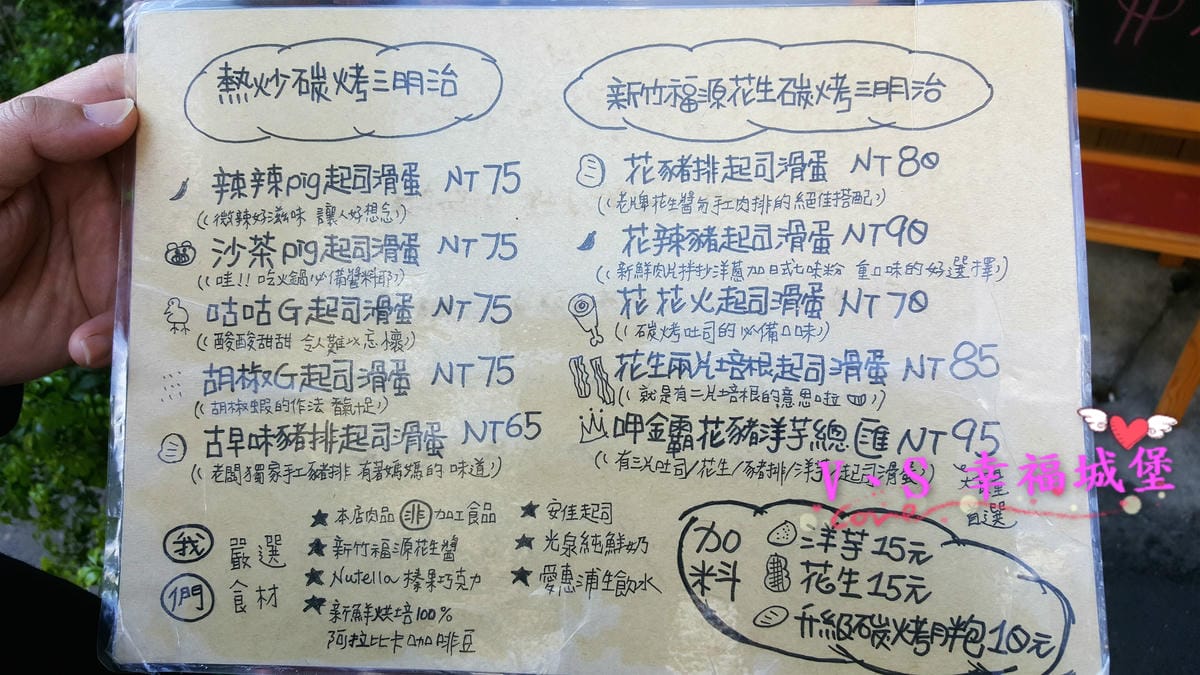 熱炒碳烤三明治
辣辣pig起司滑蛋 NT75
((微辣好滋味 讓人好想念))
沙茶pig起司滑蛋 NT75
((哇!! 吃火鍋必備醬料耶))
咕咕G起司滑蛋 NT75
((酸酸甜甜 令人難以忘懷))
胡椒G起司滑蛋 NT75
((胡椒蝦的作法 香氣十足))
古早味豬排起司滑蛋 NT65
((老闆獨家手工豬排 有著媽媽的味道))
新竹福源花生碳烤三明治
花豬排起司滑蛋 NT80
((老牌花生醬与手工肉排的絕佳搭配))
花辣豬起司滑蛋 NT90
((新鮮肉片拌炒洋蔥加日式七味粉 重口味的好選擇))
花花火起司滑蛋 NT70
((碳烤吐司的必備口味))
花生兩片培根起司滑蛋 NT85
((就是有二片培根的意思啦))
呷金霸花豬洋芋總匯 NT95
((有三片吐司/花生/豬排/洋芋/起司滑蛋
自選
我們
嚴選
食材
★本店肉品非加工食品
★新竹福源花生醬
★Nutella 榛果巧克力
★新鮮烘培100%
阿拉比卡咖啡豆
★安佳起司
★光泉純鮮奶
★愛惠浦生飲水
加料
洋芋15元
花生15元
升級碳烤胖包10元
V.S 幸福城堡
Love